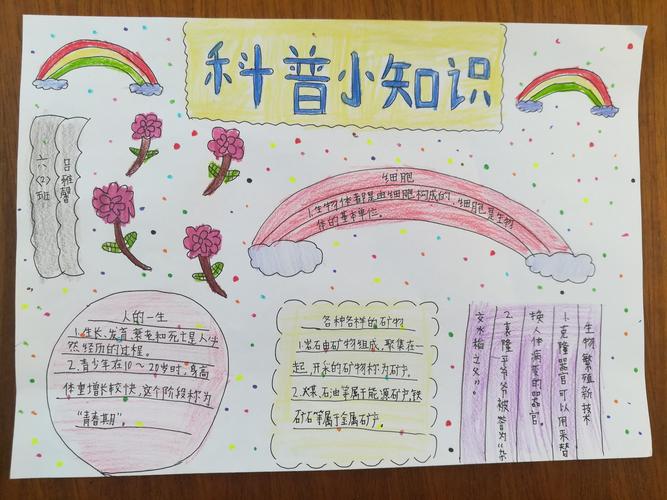 科普小知识
六(2)班
吕雅馨
细胞
1.生物体都是由细胞构成的,细胞是生物
体的基本单位。
人的一生
1.生长、发育、衰老和死亡是人生
必然经历的过程。
2.青少年在10~20岁时,身高
体重增长较快,这个阶段称为
“青春期”。
各种各样的矿物
1.岩石由矿物组成,聚集在一
起,开采的矿物称为矿产。
2.煤、石油等属于能源矿产,铁
矿石等属于金属矿产。
生物繁殖新技术
1.克隆器官可以用来替
换人体病变的器官。
2.袁隆平爷爷被誉为“杂
交水稻之父”。